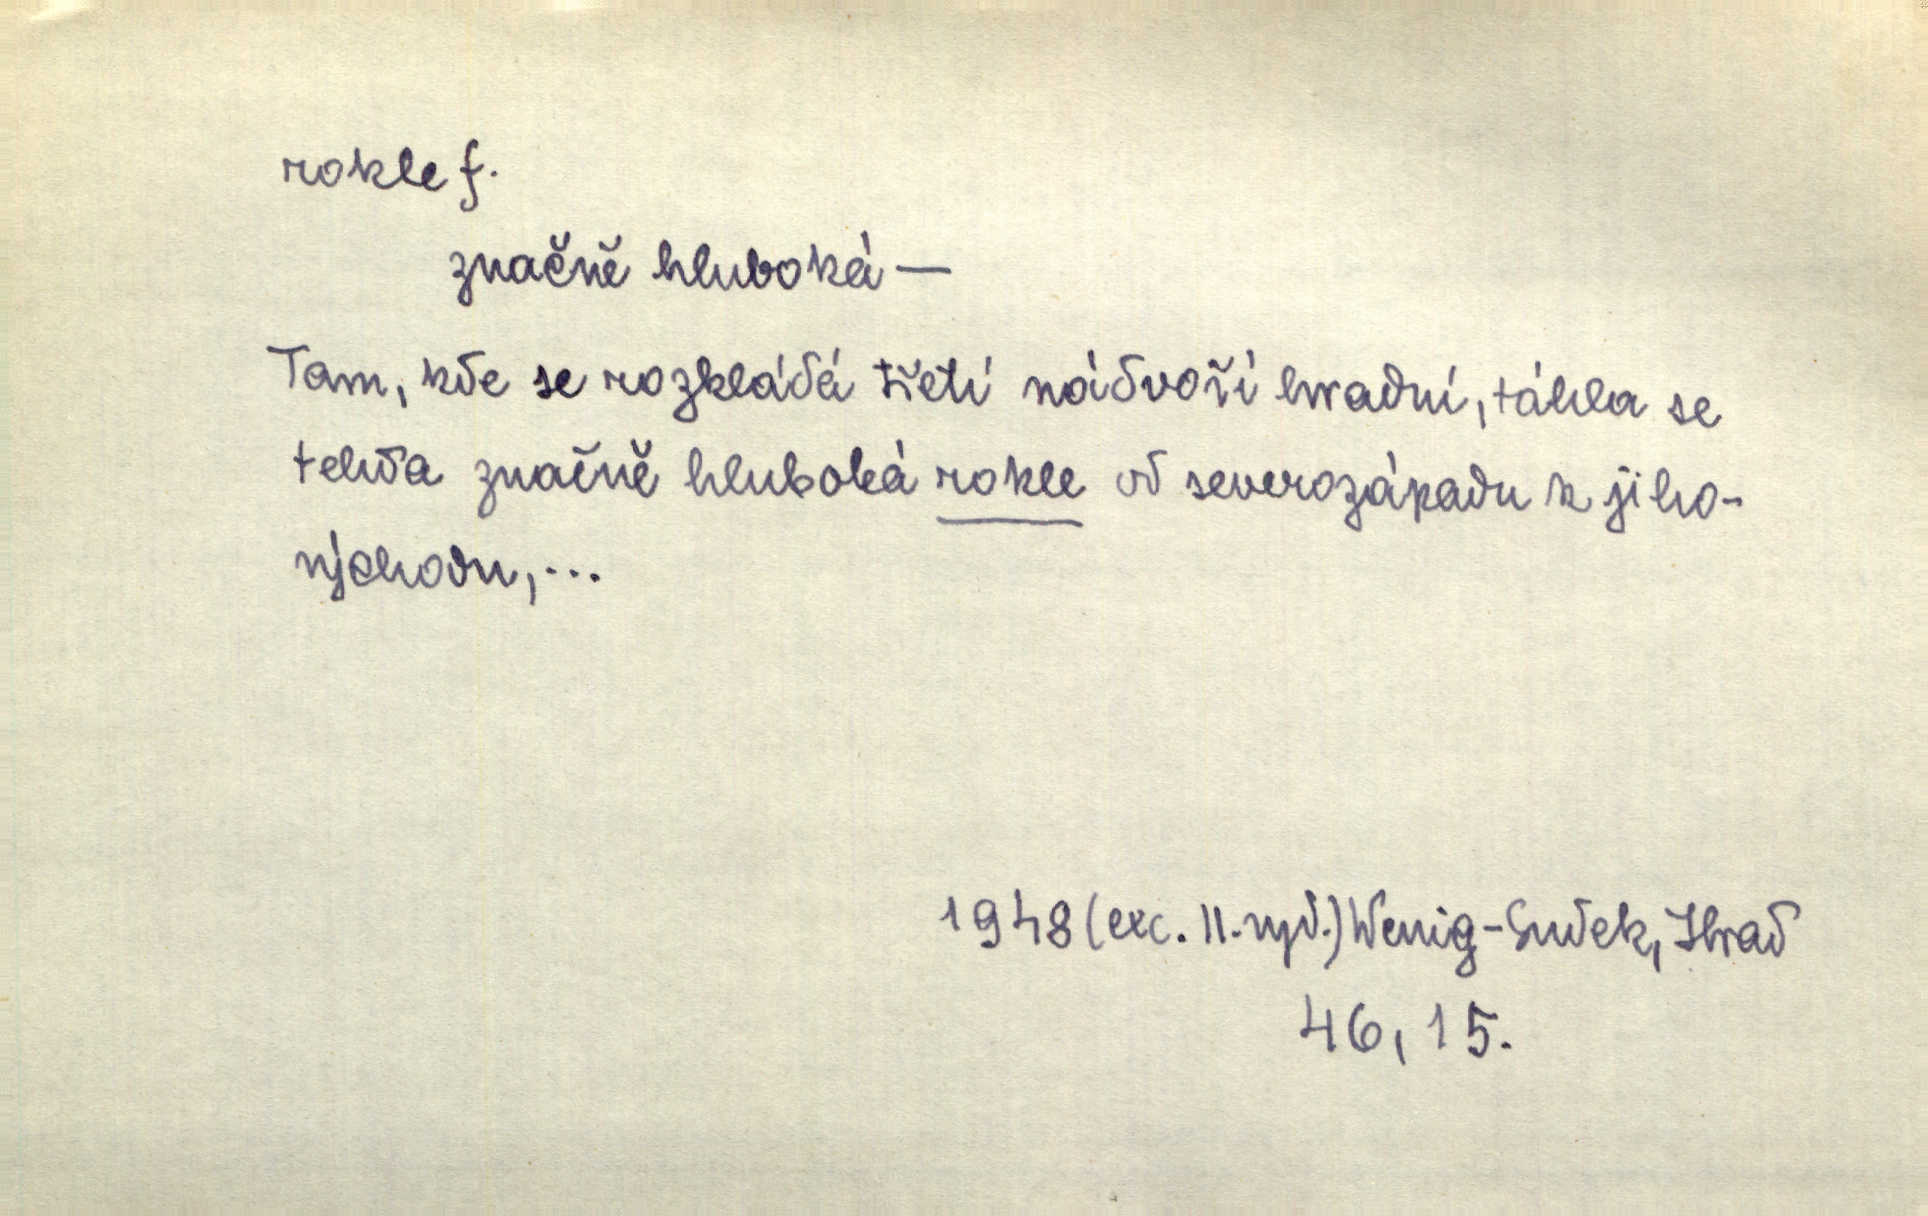 rokle f.
značně hluboká —
Tam, kde se rozkládá třetí nádvoří hradní, táhla se
tehda značně hluboká rokle od severozápadu k jiho-
východu, ...
1948 (exc. II. vyd.) Wenig-Sudek, Hrad
46, 15.